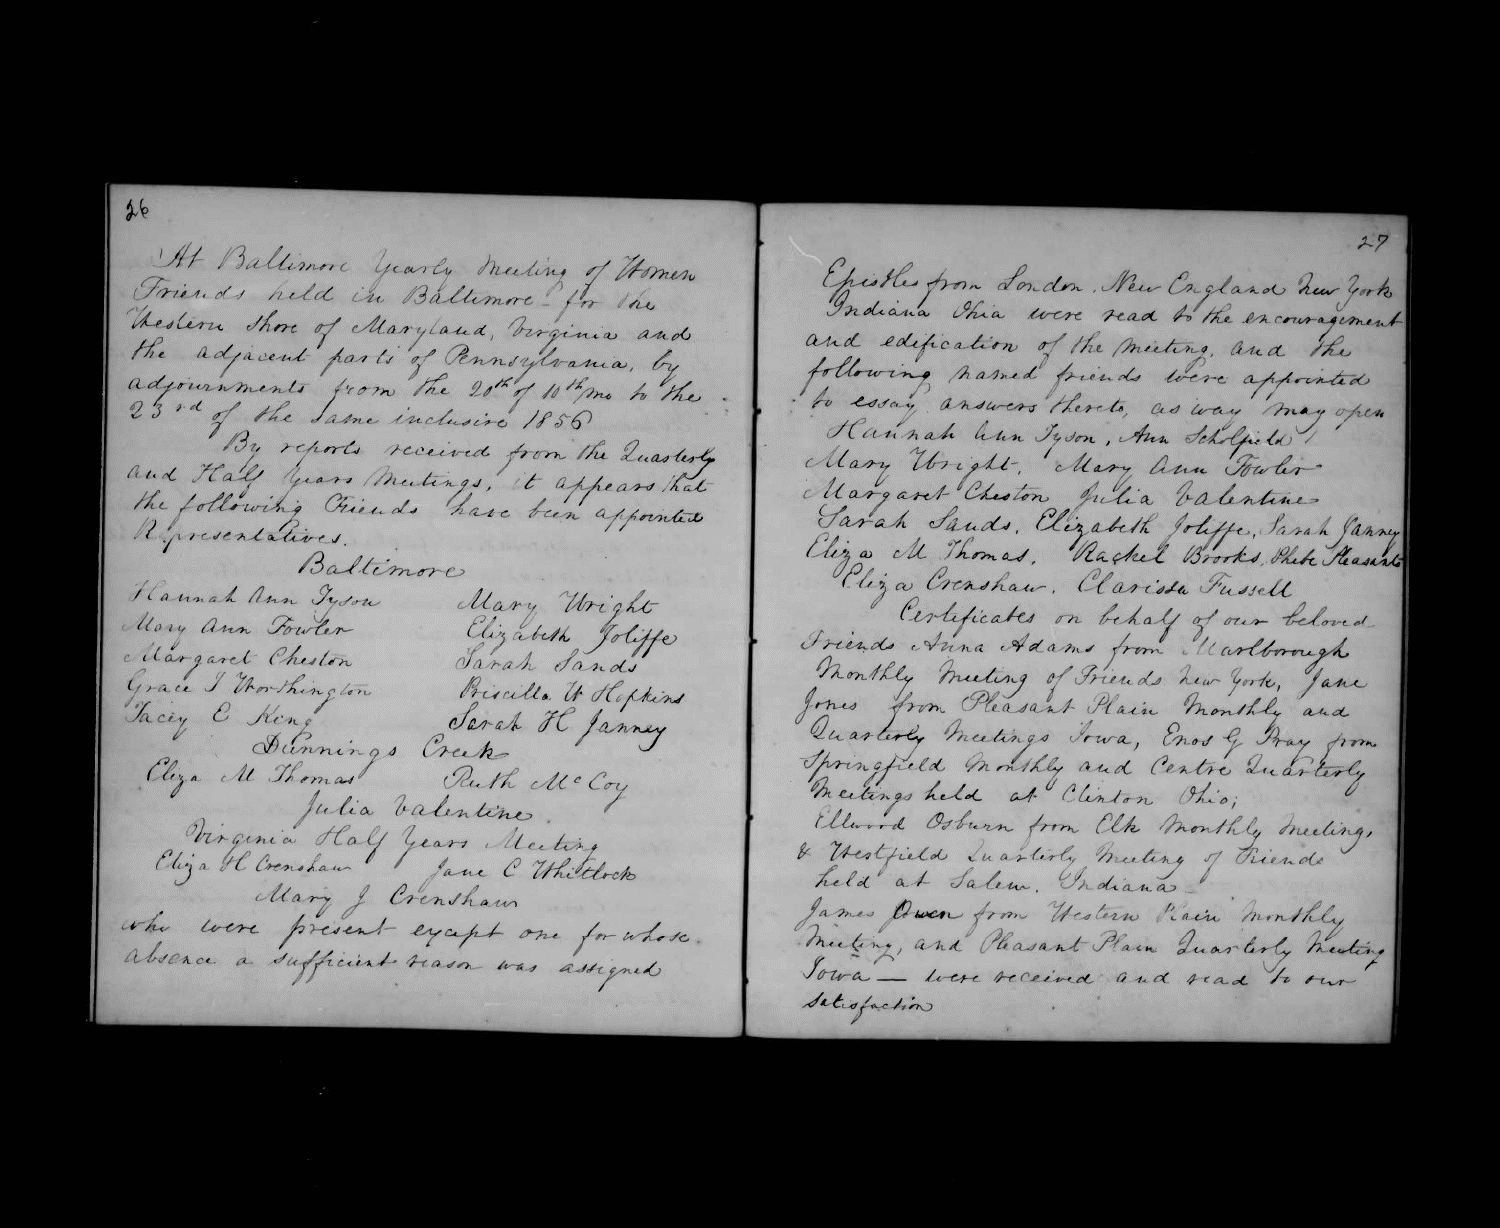 26
At Baltimore Yearly Meeting of Women
Friends held in Baltimore - for the
Western Shore of Maryland, Virginia and
the adjacent parts of Pennsylvania, by
adjournments from the 20th of 10th mo to the
23rd of the same inclusive 1856
By reports received from the Quarterly
and Half Years Meetings, it appears that
the following Friends have been appointed
Representatives.
Baltimore
Hannah Ann Tyson Mary Wright
Mary Ann Fowler Elizabeth Joliffe
Margaret Cheston Sarah Sands
Grace T Worthington Priscilla W Hopkins
Tacey E King Sarah H Janney
Dunnings Creek
Eliza M Thomas Ruth McCoy
Julia Valentine.
Virginia Half Years Meeting
Eliza H Crenshaw Jane C Whitlock
Mary J Crenshaw
who were present except one for whose
absence a sufficient reason was assigned
27
Epistles from London, New England New York
Indiana Ohio were read to the encouragement
and edification of the meeting, and the
following named friends were appointed
to essay answers thereto, as way may open
Hannah Ann Tyson, Ann Scholfield
Mary Wright, Mary Ann Fowler
Margaret Cheston Julia Valentine
Sarah Sands, Elizabeth Joliffe, Sarah Janney
Eliza M Thomas, Rachel Brooks, Phebe Pleasants
Eliza Crenshaw, Clarissa Fussell
Certificates on behalf of our beloved
Friends Anna Adams from Marlborough
Monthly Meeting of Friends New York, Jane
Jones from Pleasant Plain Monthly and
Quarterly Meetings Iowa, Enos G Pray from
Springfield Monthly and Centre Quarterly
Meetings held at Clinton Ohio;
Ellwood Osburn from Elk Monthly Meeting,
& Westfield Quarterly Meeting of Friends
held at Salem, Indiana
James Owen from Western Plain Monthly
Meeting, and Pleasant Plain Quarterly Meeting
Iowa — were received and read to our
satisfaction